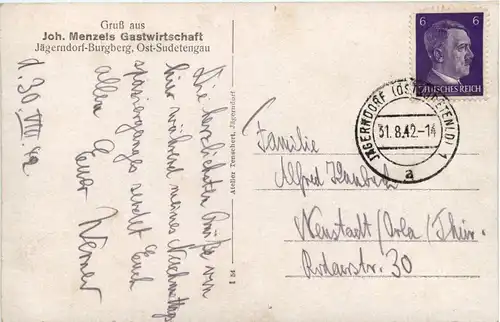 Gruß aus
Joh. Menzels Gastwirtschaft
Jägerndorf-Burgberg, Ost-Sudetengau
d. 30. VIII. 42
Die herzlichsten Grüße von
hier während meines Nachmittags
spazierganges sendet Euch
allen Euer
Werner
Atelier Temschert, Jägerndorf.
I 54
6 6
DEUTSCHES REICH
JÄGERNDORF (OSTSUDETENLD) 1
31.8.42-14
a
Familie
Alfred
Neustadt/Orla /Thür.
30